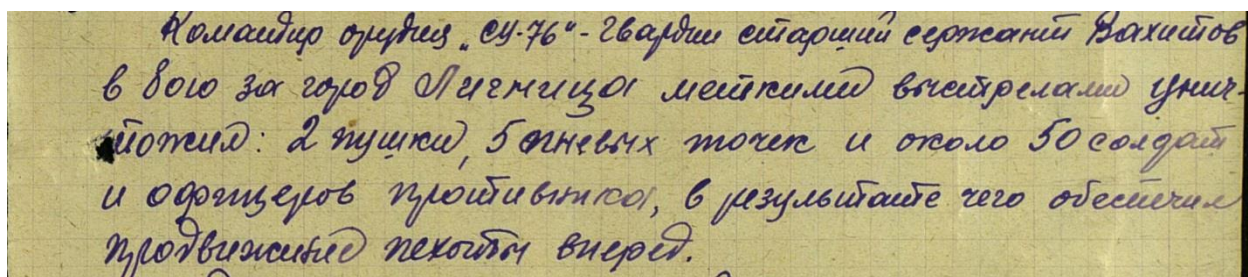 Командир орудия „СУ-76“ - гвардии старший сержант Вахитов
в бою за город Лигница меткими выстрелами унич-
тожил: 2 пушки, 5 огневых точек и около 50 солдат
и офицеров противника, в результате чего обеспечил
продвижение пехоты вперед.